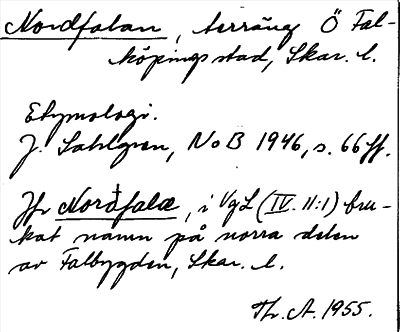 Nordfalan, terräng Ö Fal-
köpings stad, Skar. l.
Etymologi.
J. Sahlgren, NoB 1946, s. 66 ff.
Jfr Nordfalæ, i VgL (IV. 11:1) bru-
kat namn på norra delen
av Falbygden, Skar. l.
Th. A. 1955.